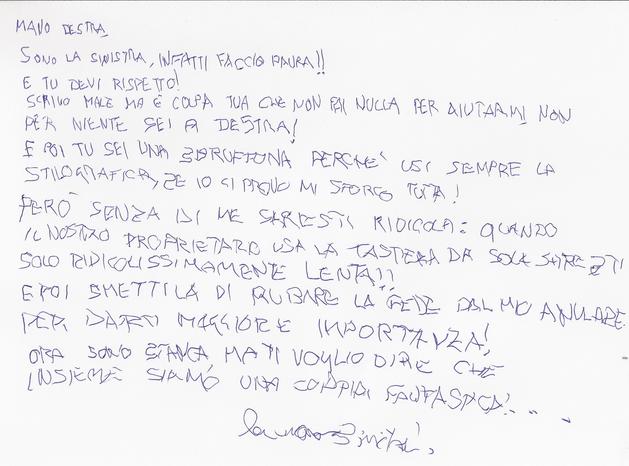 MANO DESTRA
SONO LA SINISTRA, INFATTI FACCIO PAURA!!
E TU DEVI RISPETTO!
SCRIVO MALE MA È COLPA TUA CHE NON FAI NULLA PER AIUTARMI NON
PER NIENTE SEI A DESTRA!
E POI TU SEI UNA SBRUFFONA PERCHE' USI SEMPRE LA
STILOGRAFICA, SE IO CI PROVO MI SPORCO TUTTA!
PERÒ SENZA DI ME SARESTI RIDICOLA: QUANDO
IL NOSTRO PROPRIETARO USA LA TASTIERA DA SOLA SARESTI
SOLO RIDICOLISSIMAMENTE LENTA!!
E POI SMETTILA DI RUBARE LA FEDE DAL MIO ANULARE
PER DARTI MAGGIORE IMPORTANZA!
ORA SONO STANCA, MA TI VOGLIO DIRE CHE
INSIEME SIAMO UNA COPPIA FANTASTICA!....
la mano Sinistra!